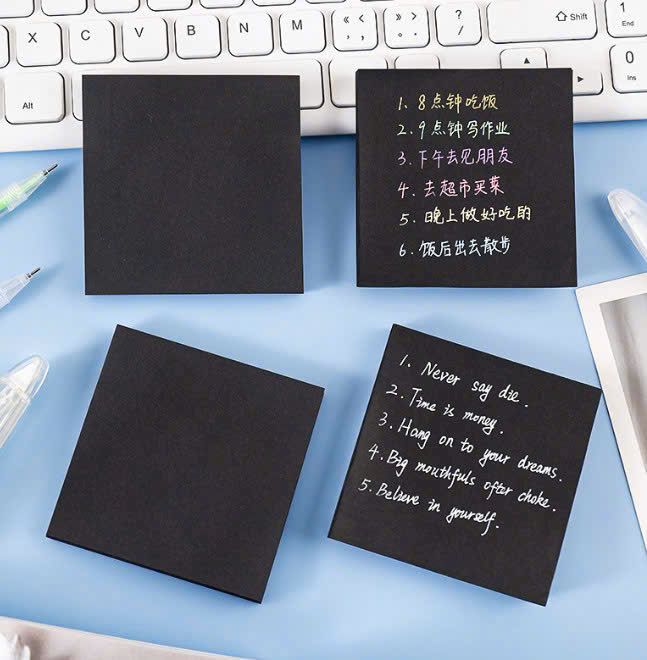 X C V B N M « < , » > . ? /
Shift
1 End
Alt
0 Ins
1. 8点钟吃饭
2. 9点钟写作业
3. 下午去见朋友
4. 去超市买菜
5. 晚上做好吃的
6. 饭后出去散步
1. Never say die.
2. Time is money.
3. Hang on to your dreams.
4. Big mouthfuls ofter choke.
5. Believe in yourself.